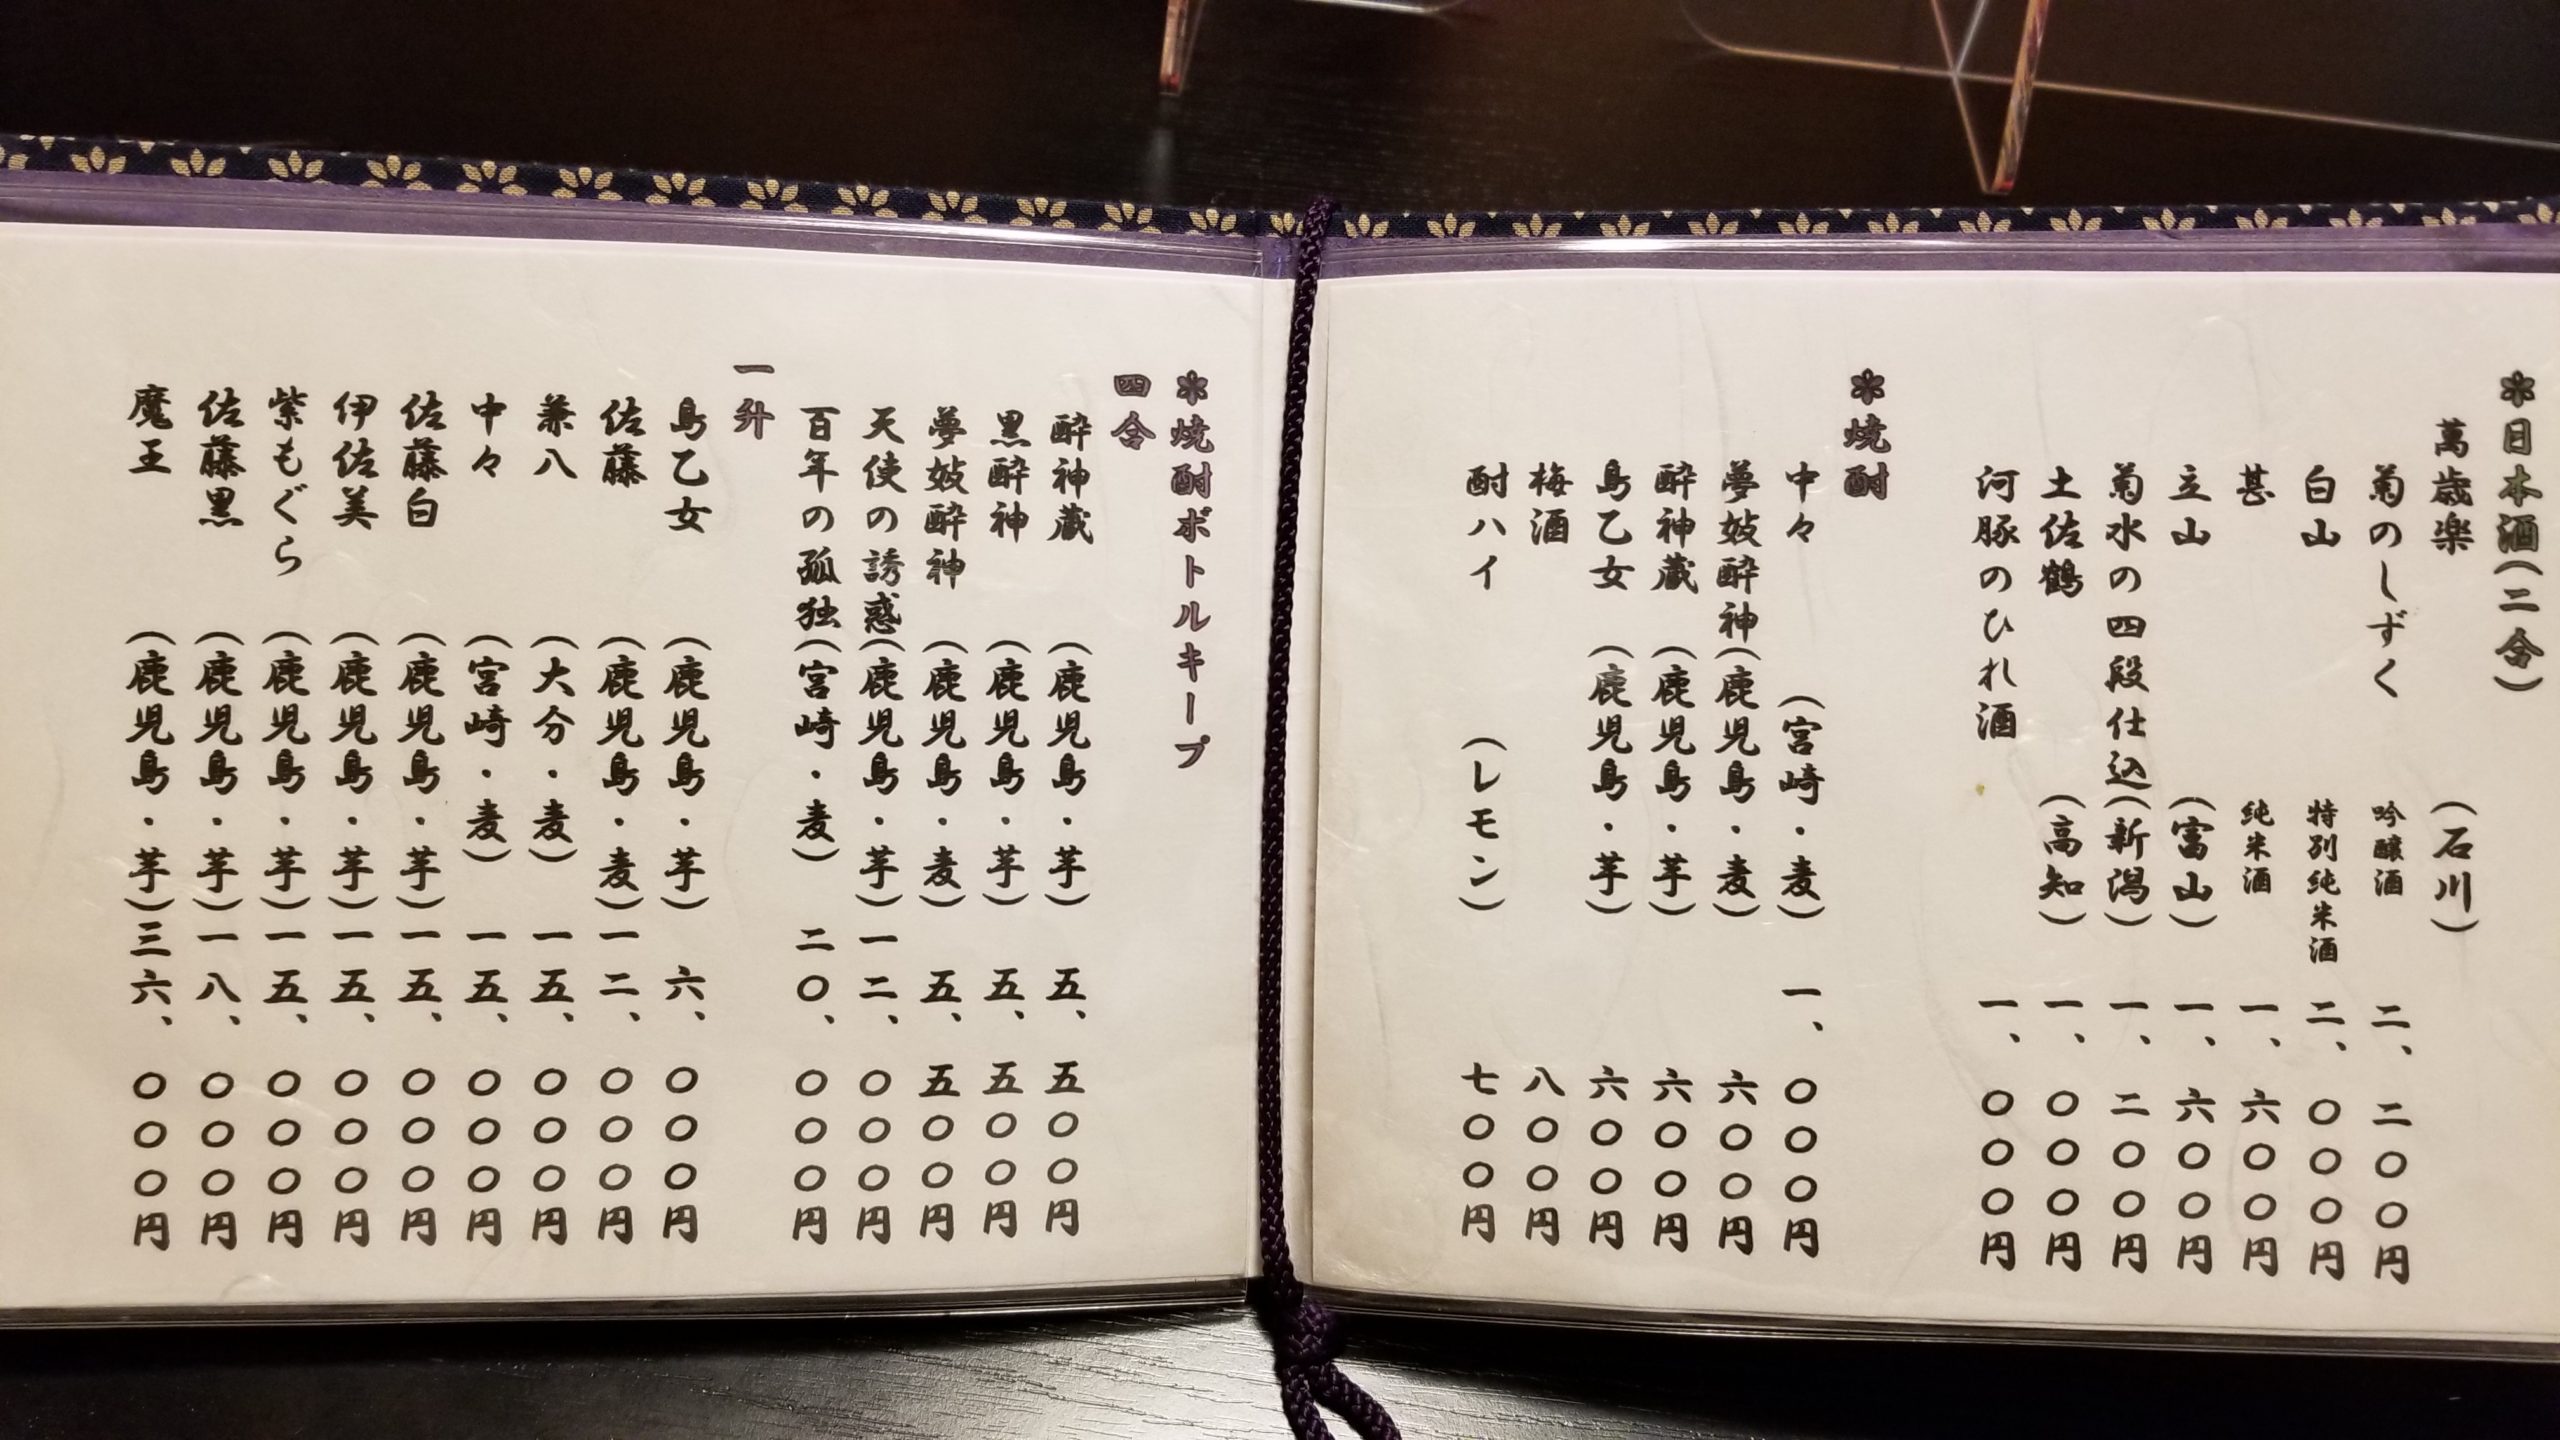 ✽日本酒(二合)
萬歳楽 (石川)
菊のしずく 吟醸酒 二、二〇〇円
白山 特別純米酒 二、〇〇〇円
甚 純米酒 一、六〇〇円
立山 (富山) 一、六〇〇円
菊水の四段仕込(新潟) 一、二〇〇円
土佐鶴 (高知) 一、〇〇〇円
河豚のひれ酒 一、〇〇〇円
✽焼酎
中々 (宮崎・麦) 一、〇〇〇円
夢妓酔神(鹿児島・麦) 六〇〇円
酔神蔵 (鹿児島・芋) 六〇〇円
島乙女 (鹿児島・芋) 六〇〇円
梅酒 八〇〇円
酎ハイ (レモン) 七〇〇円
✽焼酎ボトルキープ
四合
酔神蔵 (鹿児島・芋) 五、五〇〇円
黒酔神 (鹿児島・芋) 五、五〇〇円
夢妓酔神 (鹿児島・麦) 五、五〇〇円
天使の誘惑(鹿児島・芋) 一二、〇〇〇円
百年の孤独(宮崎・麦) 二〇、〇〇〇円
一升
島乙女 (鹿児島・芋) 六、〇〇〇円
佐藤 (鹿児島・麦) 一二、〇〇〇円
兼八 (大分・麦) 一五、〇〇〇円
中々 (宮崎・麦) 一五、〇〇〇円
佐藤白 (鹿児島・芋) 一五、〇〇〇円
伊佐美 (鹿児島・芋) 一五、〇〇〇円
紫もぐら (鹿児島・芋) 一五、〇〇〇円
佐藤黒 (鹿児島・芋) 一八、〇〇〇円
魔王 (鹿児島・芋) 三六、〇〇〇円